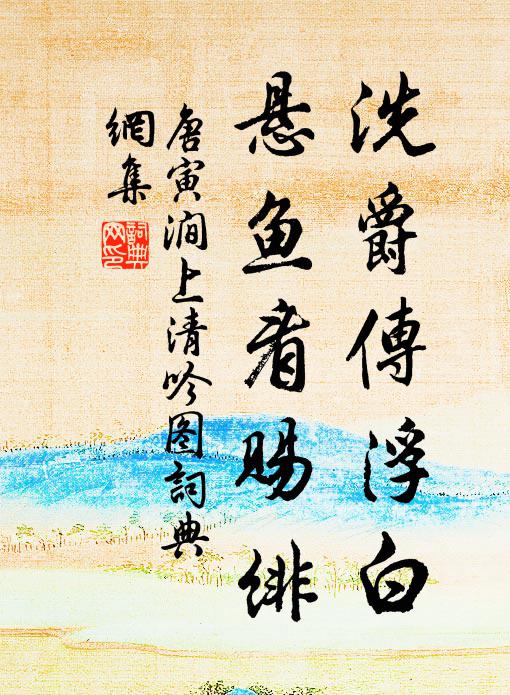 洗爵傳浮白
悬鱼看賜緋
唐寅澗上清吟图詞典
網集
詞典
网印